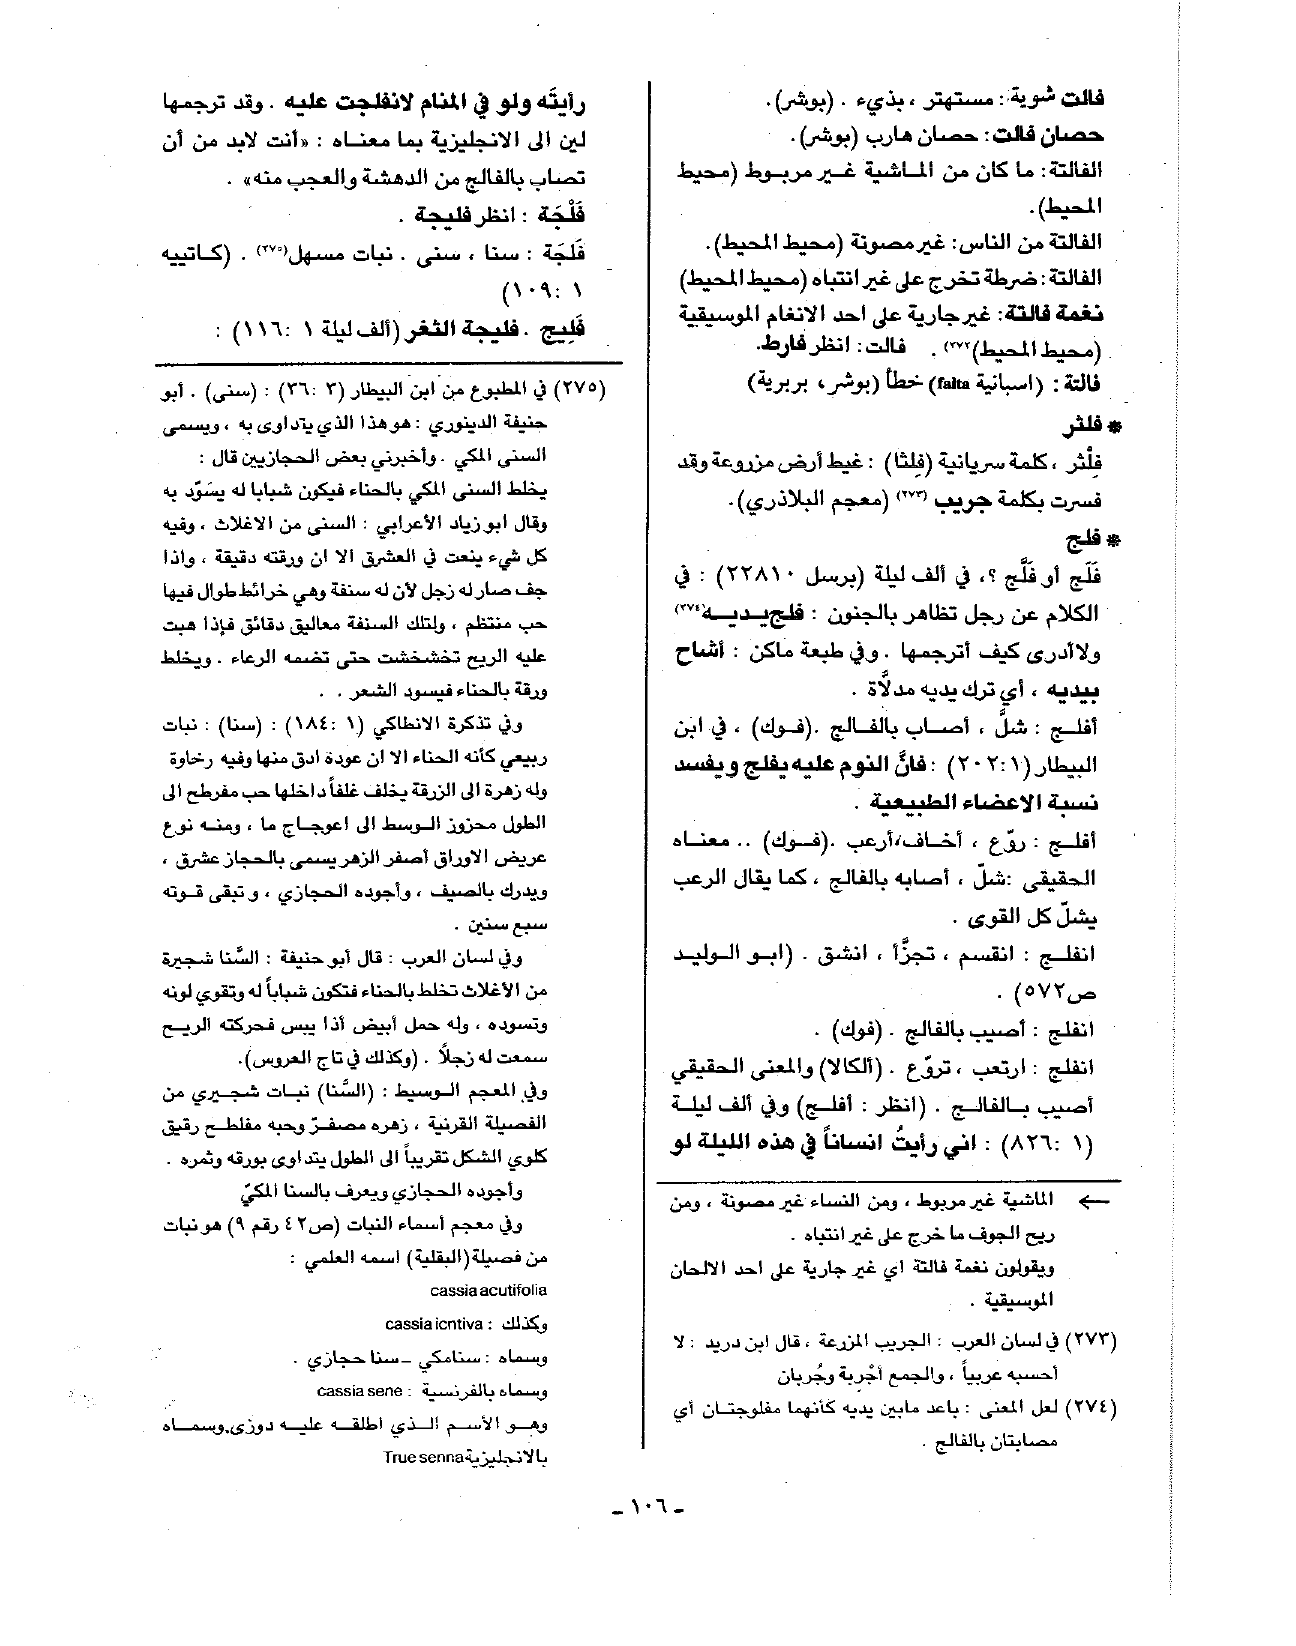 فالت شوية: مستهتر ، بذيء . (بوشر).
حصان فالت: حصان هارب (بوشر).
الفالتة: ما كان من الماشية غير مربوط (محيط
المحيط).
الفالتة من الناس: غير مصونة (محيط المحيط).
الفالتة: ضرطة تخرج على غير انتباه (محيط المحيط)
نغمة فالتة: غير جارية على احد الانغام الموسيقية
(محيط المحيط)(٢٧٢). فالت: انظر فارط.
فالتة: (اسبانية falta) خطأ (بوشر، بربرية)
* فلثر
فِلْثر ، كلمة سريانية (فِلثا) : غيط أرض مزروعة وقد
فسرت بكلمة جريب (٢٧٣) (معجم البلاذري).
* فلج
فَلَج أو فَلَّج ؟، في ألف ليلة (برسل ٢٢٨١٠) : في
الكلام عن رجل تظاهر بالجنون : فلج يديه(٢٧٤)
ولا أدرى كيف أترجمها . وفي طبعة ماكن : أشاح
بيديه ، أي ترك يديه مدلَّاة .
أفلج : شلَّ ، أصاب بالفالج .(فوك) ، في ابن
البيطار (٢٠٢:١) : فانَّ النوم عليه يفلج ويفسد
نسبة الاعضاء الطبيعية .
أفلج : روّع ، أخاف/أرعب .(فوك) .. معناه
الحقيقي :شلّ ، أصابه بالفالج ، كما يقال الرعب
يشلّ كل القوى .
انفلج : انقسم ، تجزَّأ ، انشق . (ابو الوليد
ص٥٧٢) .
انفلج : أصيب بالفالج . (فوك) .
انفلج : ارتعب ، تروّع . (ألكالا) والمعنى الحقيقي
أصيب بالفالج . (انظر : أفلج) وفي ألف ليلة
(١ :٨٢٦) : اني رأيتُ انساناً في هذه الليلة لو
← الماشية غير مربوط ، ومن النساء غير مصونة ، ومن
ريح الجوف ما خرج على غير انتباه .
ويقولون نغمة فالتة اي غير جارية على احد الالحان
الموسيقية .
(٢٧٣) في لسان العرب : الجريب المزرعة ، قال ابن دريد : لا
أحسبه عربياً ، والجمع أجْربة وجُربان
(٢٧٤) لعل المعنى : باعد مابين يديه كأنهما مفلوجتان أي
مصابتان بالفالج .
رأيتَه ولو في المنام لانفلجت عليه . وقد ترجمها
لين الى الانجليزية بما معناه : «أنت لابد من أن
تصاب بالفالج من الدهشة والعجب منه» .
فَلْجَة : انظر فليجة .
فَلَجَة : سنا ، سنى . نبات مسهل(٢٧٥) . (كاتييه
١ :١٠٩)
فَلِيج . فليجة الثغر (ألف ليلة ١ :١١٦) :
(٢٧٥) في المطبوع من ابن البيطار (٣ :٣٦) : (سنى) . أبو
حنيفة الدينوري : هو هذا الذي يتداوى به ، ويسمى
السنى المكي . وأخبرني بعض الحجازيين قال :
يخلط السنى المكي بالحناء فيكون شبابا له يسَوّد به
وقال ابو زياد الأعرابي : السنى من الاغلاث ، وفيه
كل شيء ينعت في العشرق الا ان ورقته دقيقة ، واذا
جف صار له زجل لأن له سنفة وهي خرائط طوال فيها
حب منتظم ، ولتلك السنفة معاليق دقائق فإذا هبت
عليه الريح تخشخشت حتى تضمه الرعاء . ويخلط
ورقة بالحناء فيسود الشعر . .
وفي تذكرة الانطاكي (١ :١٨٤) : (سنا) : نبات
ربيعي كأنه الحناء الا ان عودة ادق منها وفيه رخاوة
وله زهرة الى الزرقة يخلف غلفاً داخلها حب مفرطح الى
الطول محزوز الوسط الى اعوجاج ما ، ومنه نوع
عريض الاوراق أصفر الزهر يسمى بالحجاز عشرق ،
ويدرك بالصيف ، وأجوده الحجازي ، وتبقى قوته
سبع سنين .
وفي لسان العرب : قال أبو حنيفة : السَّنا شجيرة
من الأغلاث تخلط بالحناء فتكون شباباً له وتقوي لونه
وتسوده ، وله حمل أبيض أذا يبس فحركته الريح
سمعت له زجلاً . (وكذلك في تاج العروس).
وفي المعجم الوسيط : (السَّنا) نبات شجيري من
الفصيلة القرنية ، زهره مصفرّ وحبه مفلطح رقيق
كلوي الشكل تقريباً الى الطول يتداوى بورقه وثمره .
وأجوده الحجازي ويعرف بالسنا المكيّ
وفي معجم أسماء النبات (ص٤٢ رقم ٩) هو نبات
من فصيلة (البقلية) اسمه العلمي :
cassia acutifolia
وكذلك : cassia icntiva
وسماه : سنامكي ـ سنا حجازي .
وسماه بالفرنسية : cassia sene
وهو الأسم الذي اطلقه عليه دوزي.وسماه
بالانجليزية True senna
ـ ١٠٦ ـ